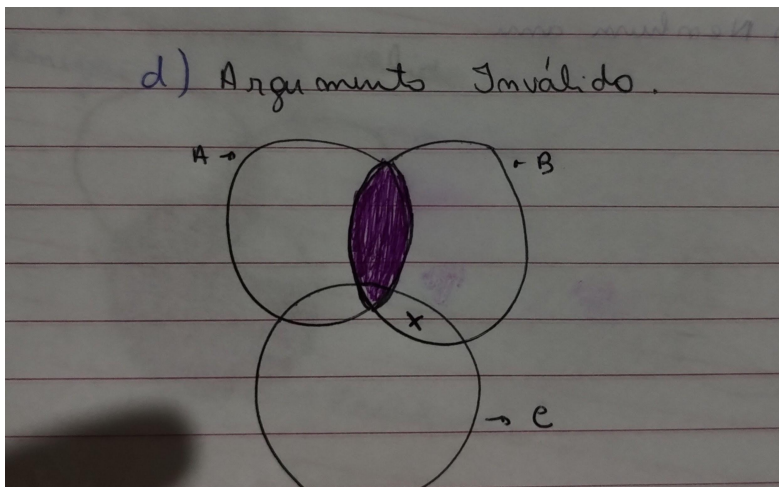 d) Argumento Inválido.
A → - B
x
→ C